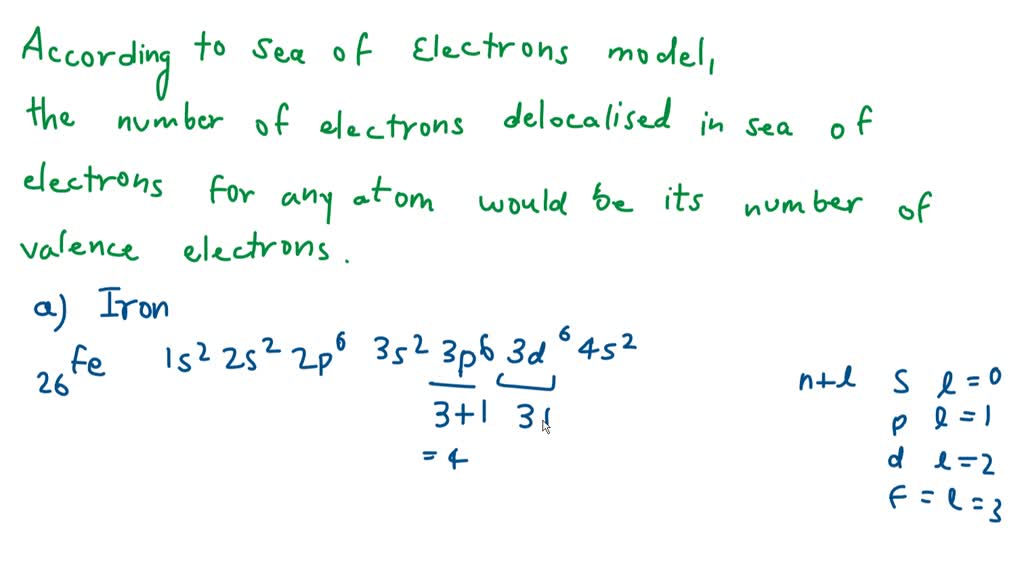 According to sea of Electrons model,
the number of electrons delocalised in sea of
electrons for any atom would be its number of
valence electrons.
a) Iron
₂₆Fe 1s² 2s² 2p⁶ 3s² 3p⁶ 3d⁶ 4s²
3+1 3
= 4
n+l s l = 0
p l = 1
d l = 2
F = l = 3